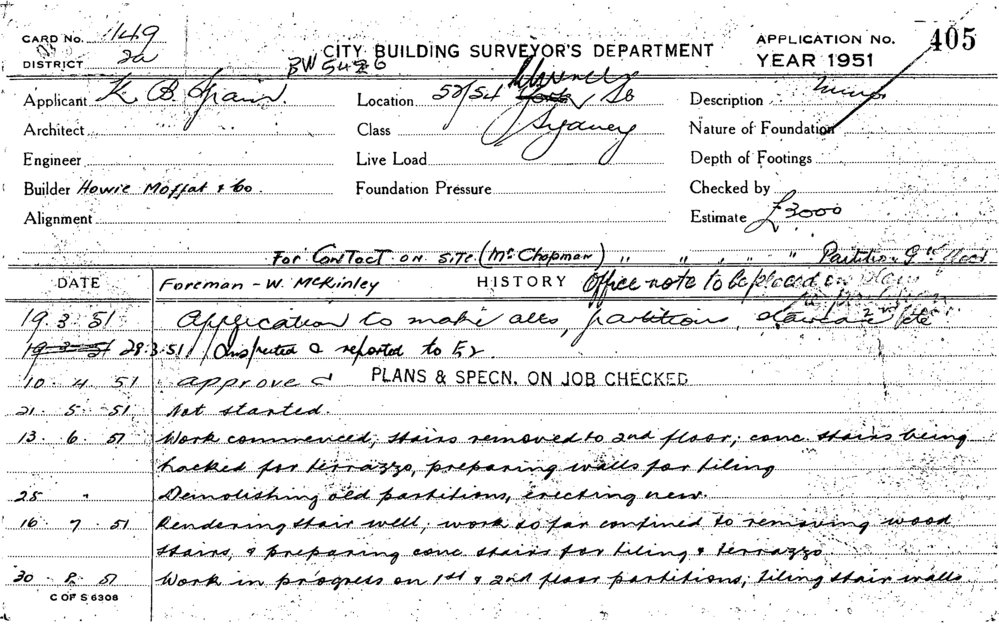 CARD No. 149
DISTRICT 2a
BW5426
CITY BUILDING SURVEYOR'S DEPARTMENT
APPLICATION No. 405
YEAR 1951
Applicant K. B.
Location 52/54 St
Sydney
Description
Architect
Class
Nature of Foundation
Engineer
Live Load
Depth of Footings
Builder Howie Moffat & Co.
Foundation Pressure
Checked by
Alignment
Estimate £3000
For Contact on site (Mr Chapman) " " " " " Partition
DATE
Foreman - W. McKinley
HISTORY
Office note to be placed on
19.3.51 Application to make alts, partitions, staircase etc
19.3.51 28.3.51 Inspected & reported to
10.4.51 approved PLANS & SPECN. ON JOB CHECKED
21.5.51 Not started.
13.6.51 Work commenced; stairs removed to 2nd floor; conc stairs being
hacked for terrazzo, preparing walls for tiling
28 " Demolishing old partitions, erecting new.
16.7.51 Rendering stair well; work so far confined to removing wood
stairs, & preparing conc stairs for tiling & terrazzo.
30.8.51 Work in progress on 1st & 2nd floor partitions, tiling stair walls
C OF S 6308